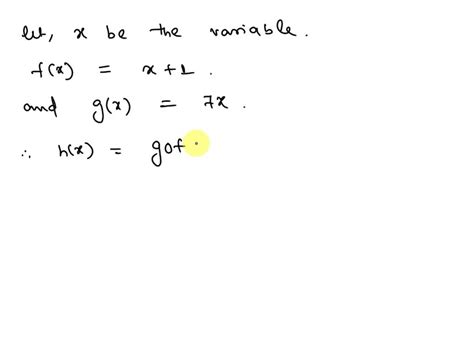 let, x be the variable.
f(x) = x+1.
and g(x) = 7x.
∴ h(x) = gof